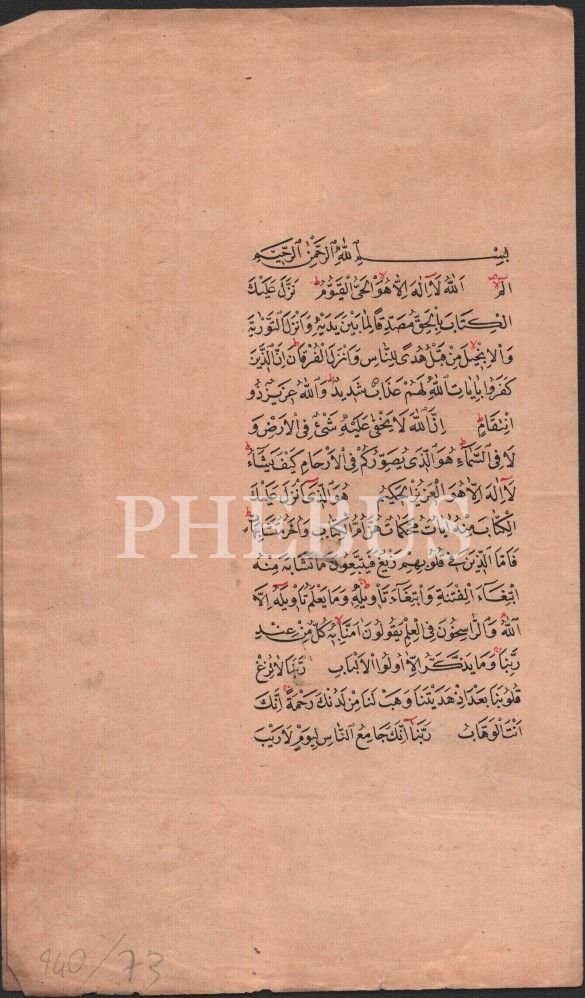 بِسْمِ اللّٰهِ الرَّحْمٰنِ الرَّحِيمِ
الم اَللّٰهُ لَا اِلٰهَ اِلَّا هُوَ الْحَىُّ الْقَيُّومُ نَزَّلَ عَلَيْكَ
الْكِتَابَ بِالْحَقِّ مُصَدِّقًا لِمَا بَيْنَ يَدَيْهِ وَاَنْزَلَ التَّوْرٰيةَ
وَالْاِنْجِيلَ مِنْ قَبْلُ هُدًى لِلنَّاسِ وَاَنْزَلَ الْفُرْقَانَ اِنَّ الَّذِينَ
كَفَرُوا بِاٰيَاتِ اللّٰهِ لَهُمْ عَذَابٌ شَدِيدٌ وَاللّٰهُ عَزِيزٌ ذُو
انْتِقَامٍ اِنَّ اللّٰهَ لَا يَخْفٰى عَلَيْهِ شَىْءٌ فِى الْاَرْضِ وَ
لَا فِى السَّمَاءِ هُوَ الَّذِى يُصَوِّرُكُمْ فِى الْاَرْحَامِ كَيْفَ يَشَاءُ
لَا اِلٰهَ اِلَّا هُوَ الْعَزِيزُ الْحَكِيمُ هُوَ الَّذِى اَنْزَلَ عَلَيْكَ
الْكِتَابَ مِنْهُ اٰيَاتٌ مُحْكَمَاتٌ هُنَّ اُمُّ الْكِتَابِ وَاُخَرُ مُتَشَابِهَاتٌ
فَاَمَّا الَّذِينَ فِى قُلُوبِهِمْ زَيْغٌ فَيَتَّبِعُونَ مَا تَشَابَهَ مِنْهُ
ابْتِغَاءَ الْفِتْنَةِ وَابْتِغَاءَ تَاْوِيلِهِ وَمَا يَعْلَمُ تَاْوِيلَهُ اِلَّا
اللّٰهُ وَالرَّاسِخُونَ فِى الْعِلْمِ يَقُولُونَ اٰمَنَّا بِهِ كُلٌّ مِنْ عِنْدِ
رَبِّنَا وَمَا يَذَّكَّرُ اِلَّا اُولُوا الْاَلْبَابِ رَبَّنَا لَا تُزِغْ
قُلُوبَنَا بَعْدَ اِذْ هَدَيْتَنَا وَهَبْ لَنَا مِنْ لَدُنْكَ رَحْمَةً اِنَّكَ
اَنْتَ الْوَهَّابُ رَبَّنَا اِنَّكَ جَامِعُ النَّاسِ لِيَوْمٍ لَا رَيْبَ
PHEBUS
940/73